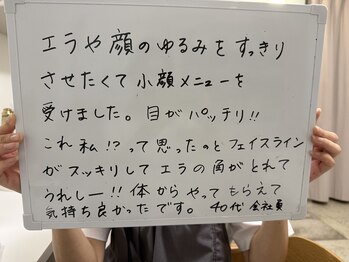 エラや顔のゆるみをすっきり
させたくて小顔メニューを
受けました。目がパッチリ!!
これ私!?って思ったのとフェイスライン
がスッキリしてエラの角がとれて
うれしー!!体からやってもらえて
気持ち良かったです。40代 会社員